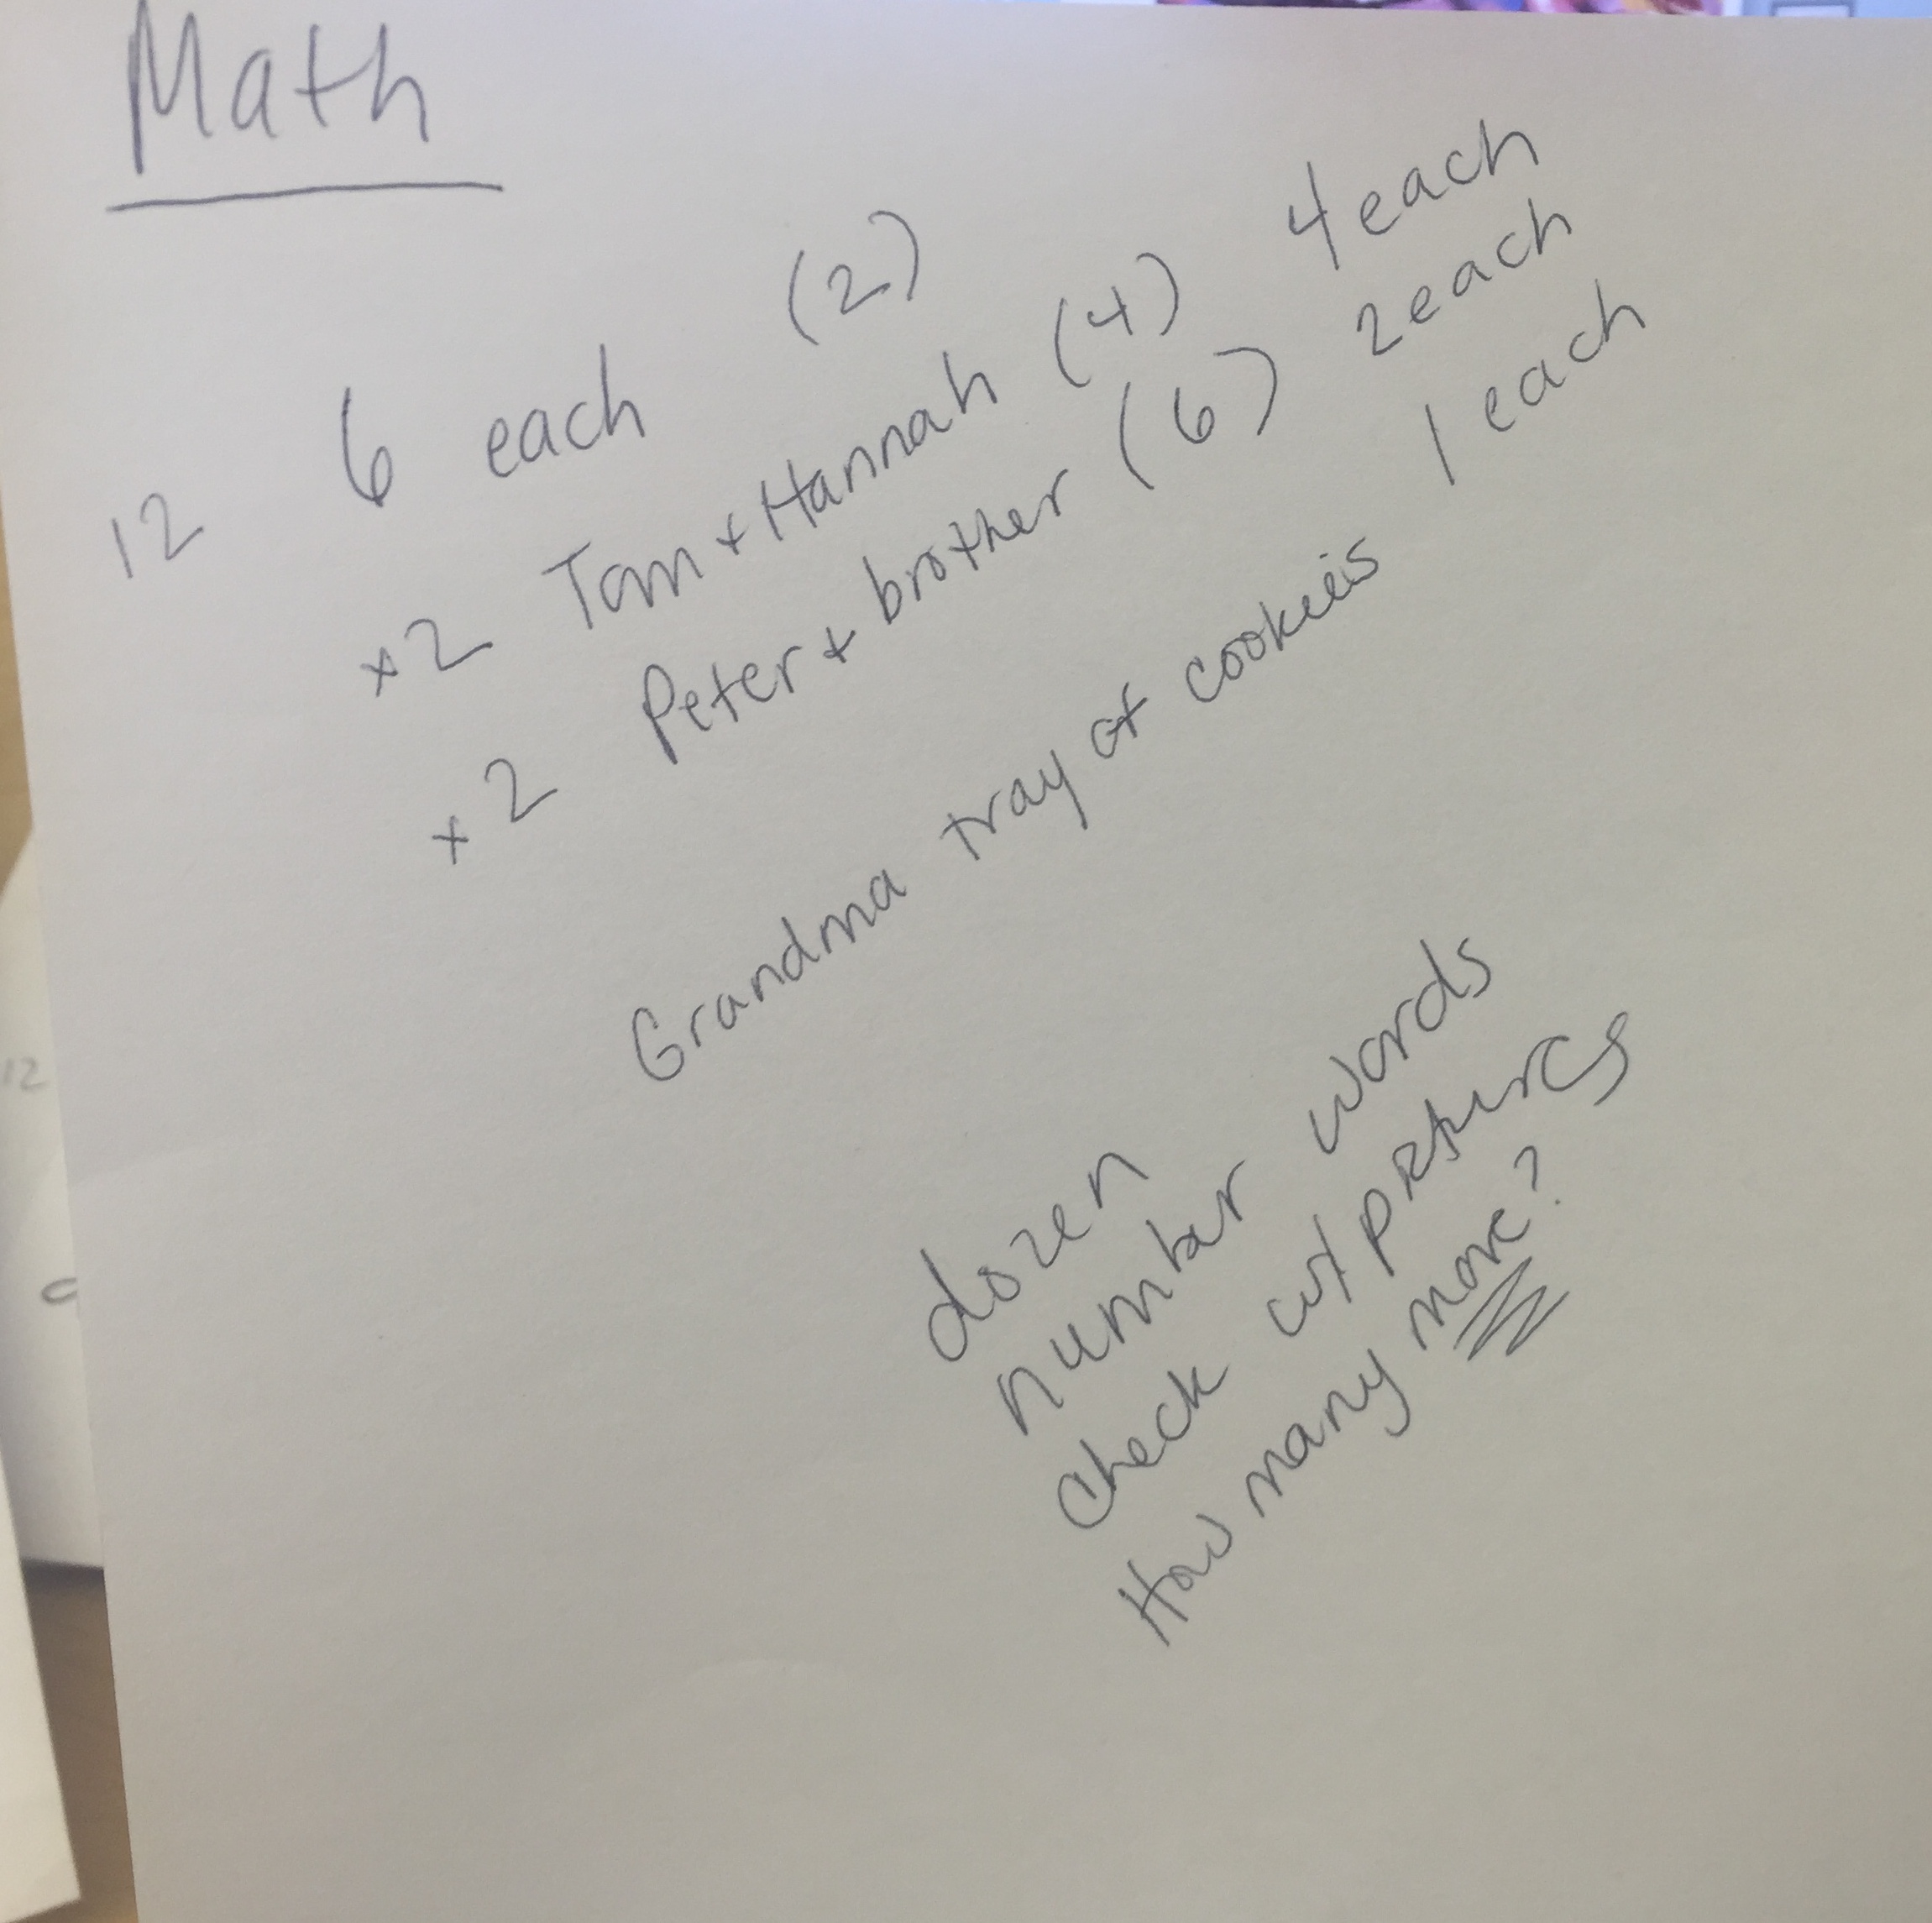 Math
12 6 each (2) 4 each
+2 Tom + Hannah (4) 2 each
+2 Peter + brother (6) 1 each
Grandma tray of cookies
dozen
number words
check w/ pictures
How many more?
12